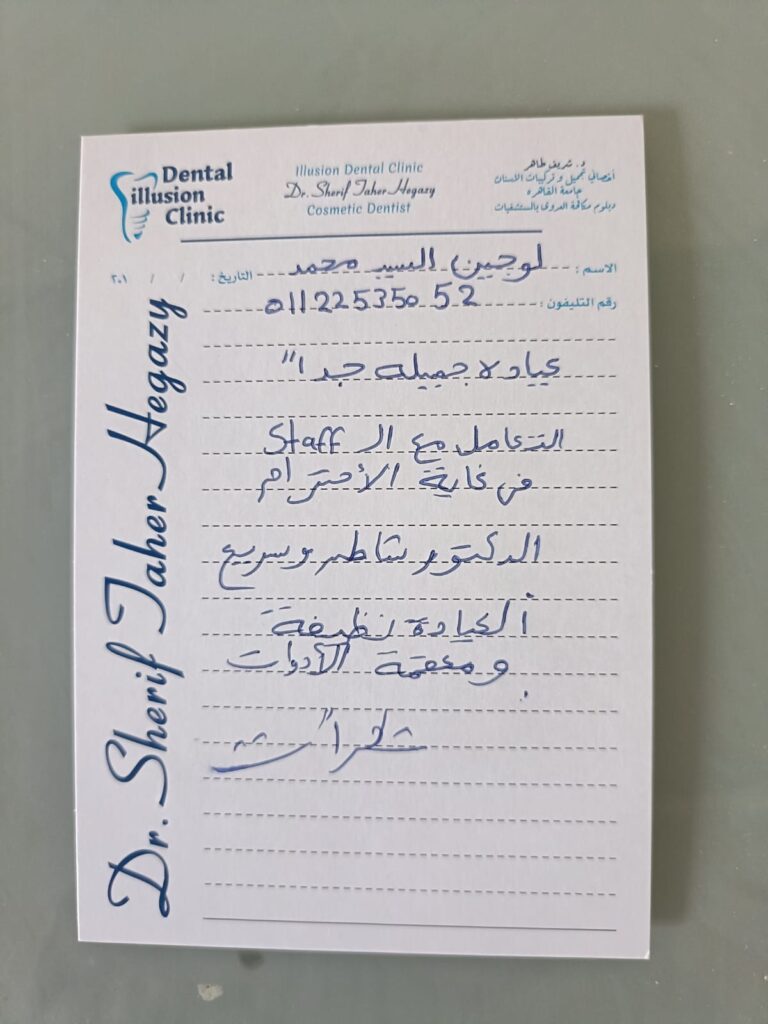 Dental
illusion
Clinic
Illusion Dental Clinic
Dr. Sherif Taher Hegazy
Cosmetic Dentist
د. شريف طاهر
أخصائي تجميل و تركيبات الاسنان
جامعة القاهرة
دبلوم مكافحة العدوى بالمستشفيات
الاسم : لوجين السيد محمد التاريخ : / / ٢٠١
رقم التليفون : 01122535052
عيادة جميله جداً
التعامل مع الـ Staff
في غاية الأحترام
الدكتور شاطر وسريع
العيادة نظيفة
ومعقمة الأدوات
شكراً
Dr. Sherif Taher Hegazy